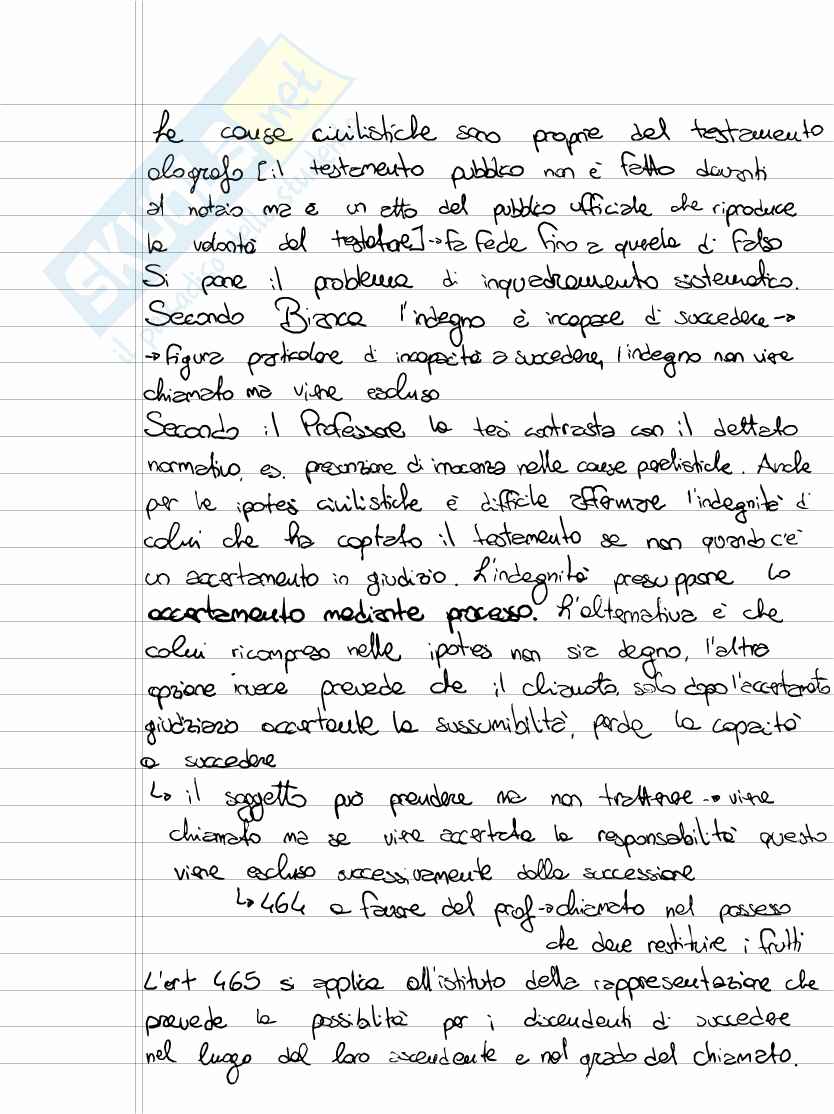 SKUOLA.net
il paradiso dello studente
Le cause civilistiche sono proprie del testamento
olografo [il testamento pubblico non è fatto davanti
al notaio ma è un atto del pubblico ufficiale che riproduce
la volontà del testatore]→fa fede fino a querela di falso
Si pone il problema di inquadramento sistematico.
Secondo Bianca l'indegno è incapace di succedere→
→figura particolare di incapacità a succedere, l'indegno non viene
chiamato ma viene escluso
Secondo il Professore la tesi contrasta con il dettato
normativo, es. presunzione di innocenza nelle cause penalistiche. Anche
per le ipotesi civilistiche è difficile affermare l'indegnità di
colui che ha captato il testamento se non quando c'è
un accertamento in giudizio. L'indegnità presuppone lo
accertamento mediante processo. L'alternativa è che
colui ricompreso nelle ipotesi non sia degno, l'altra
opzione invece prevede che il chiamato, solo dopo l'accertamento
giudiziario accertante la sussumibilità, perde la capacità
a succedere
↳ il soggetto può prendere ma non trattenere→viene
chiamato ma se viene accertata la responsabilità questo
viene escluso successivamente dalla successione
↳464 a favore del prof→chiamato nel possesso
che deve restituire i frutti
L'art 465 si applica all'istituto della rappresentazione che
prevede la possibilità per i discendenti di succedere
nel luogo del loro ascendente e nel grado del chiamato.